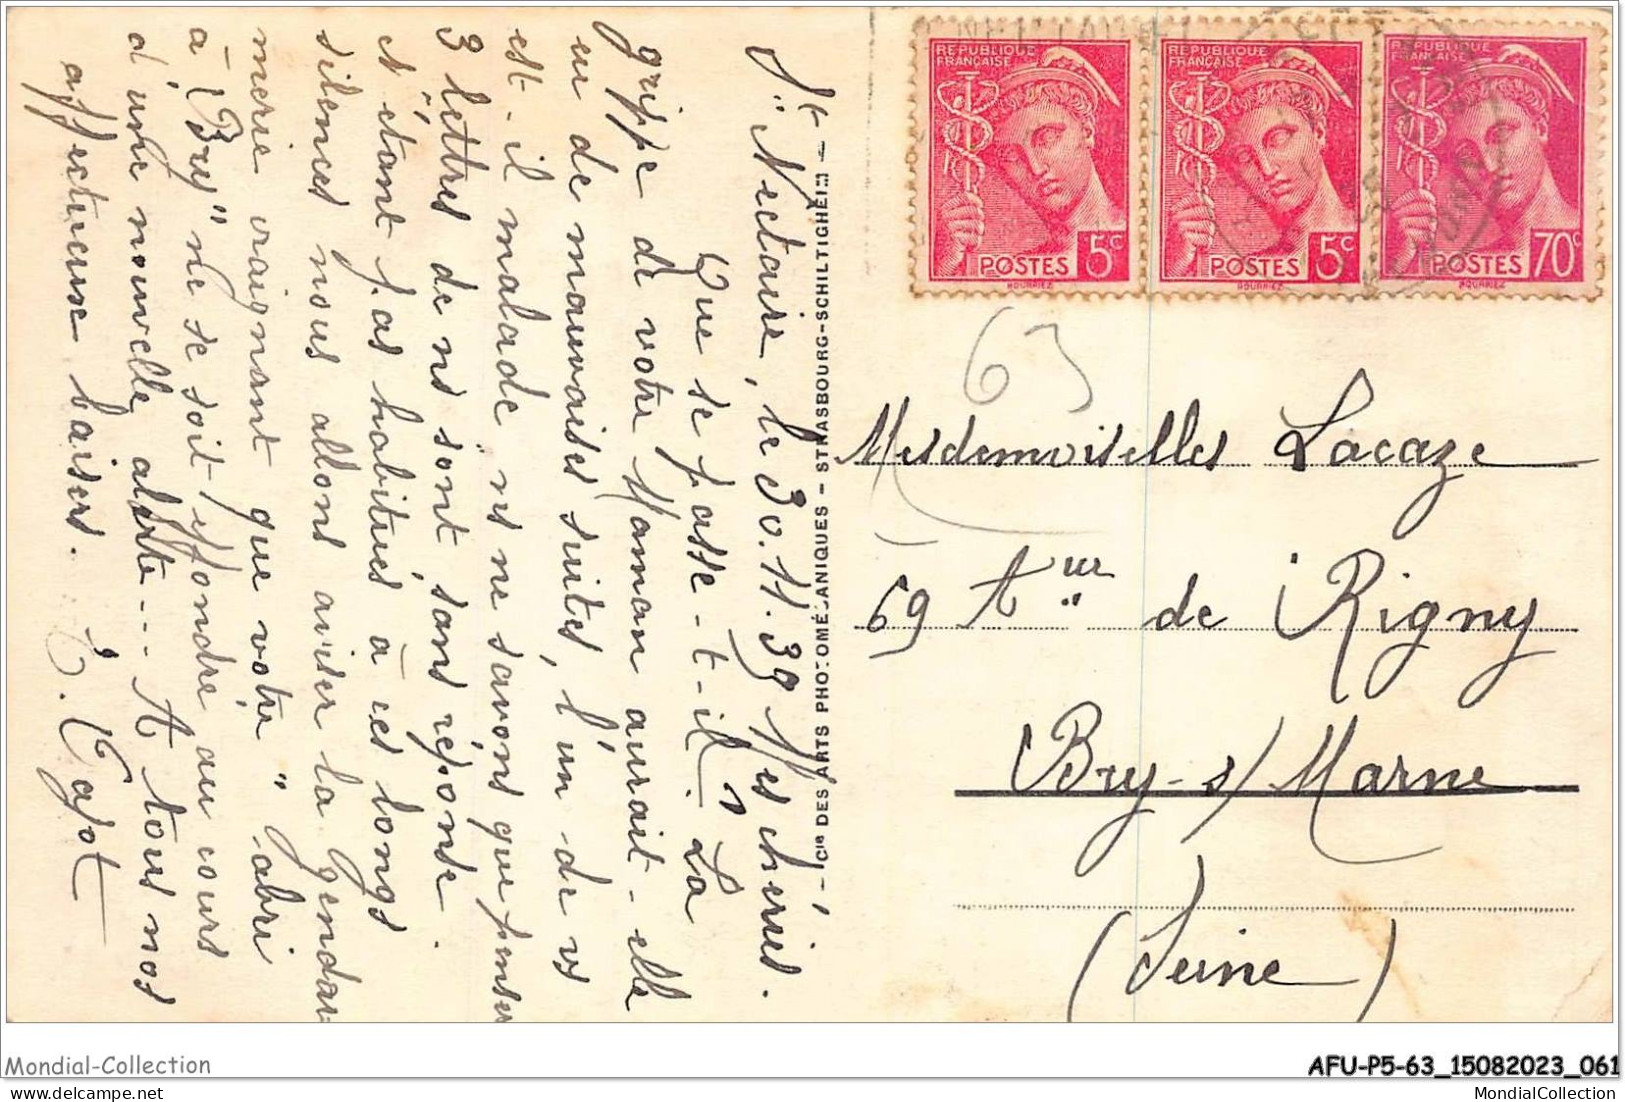 St Nectaire, le 30.11.39 Mes chéries.
Que se passe-t-il? La
grippe de votre Maman aurait-elle
eu de mauvaises suites, l'un de vs
est-il malade ns ne savons que penser
3 lettres de ns sont sans réponse.
et étant pas habitués à ces longs
silences nous allons aviser la gendar
merie craignant que votre "abri
à Bry" ne se soit effondré au cours
d'une nouvelle alerte... A tous nos
affectueux baisers.
- Cie DES ARTS PHOTOMÉCANIQUES - STRASBOURG-SCHILTIGHEIM -
REPUBLIQUE FRANÇAISE
POSTES 5c
REPUBLIQUE FRANÇAISE
POSTES 5c
REPUBLIQUE FRANÇAISE
POSTES 70c
63
Mesdemoiselles Lacaze
69 Aue de Rigny
Bry-s/Marne
(Seine)
Mondial-Collection
AFU-P5-63_15082023_061
MondialCollection